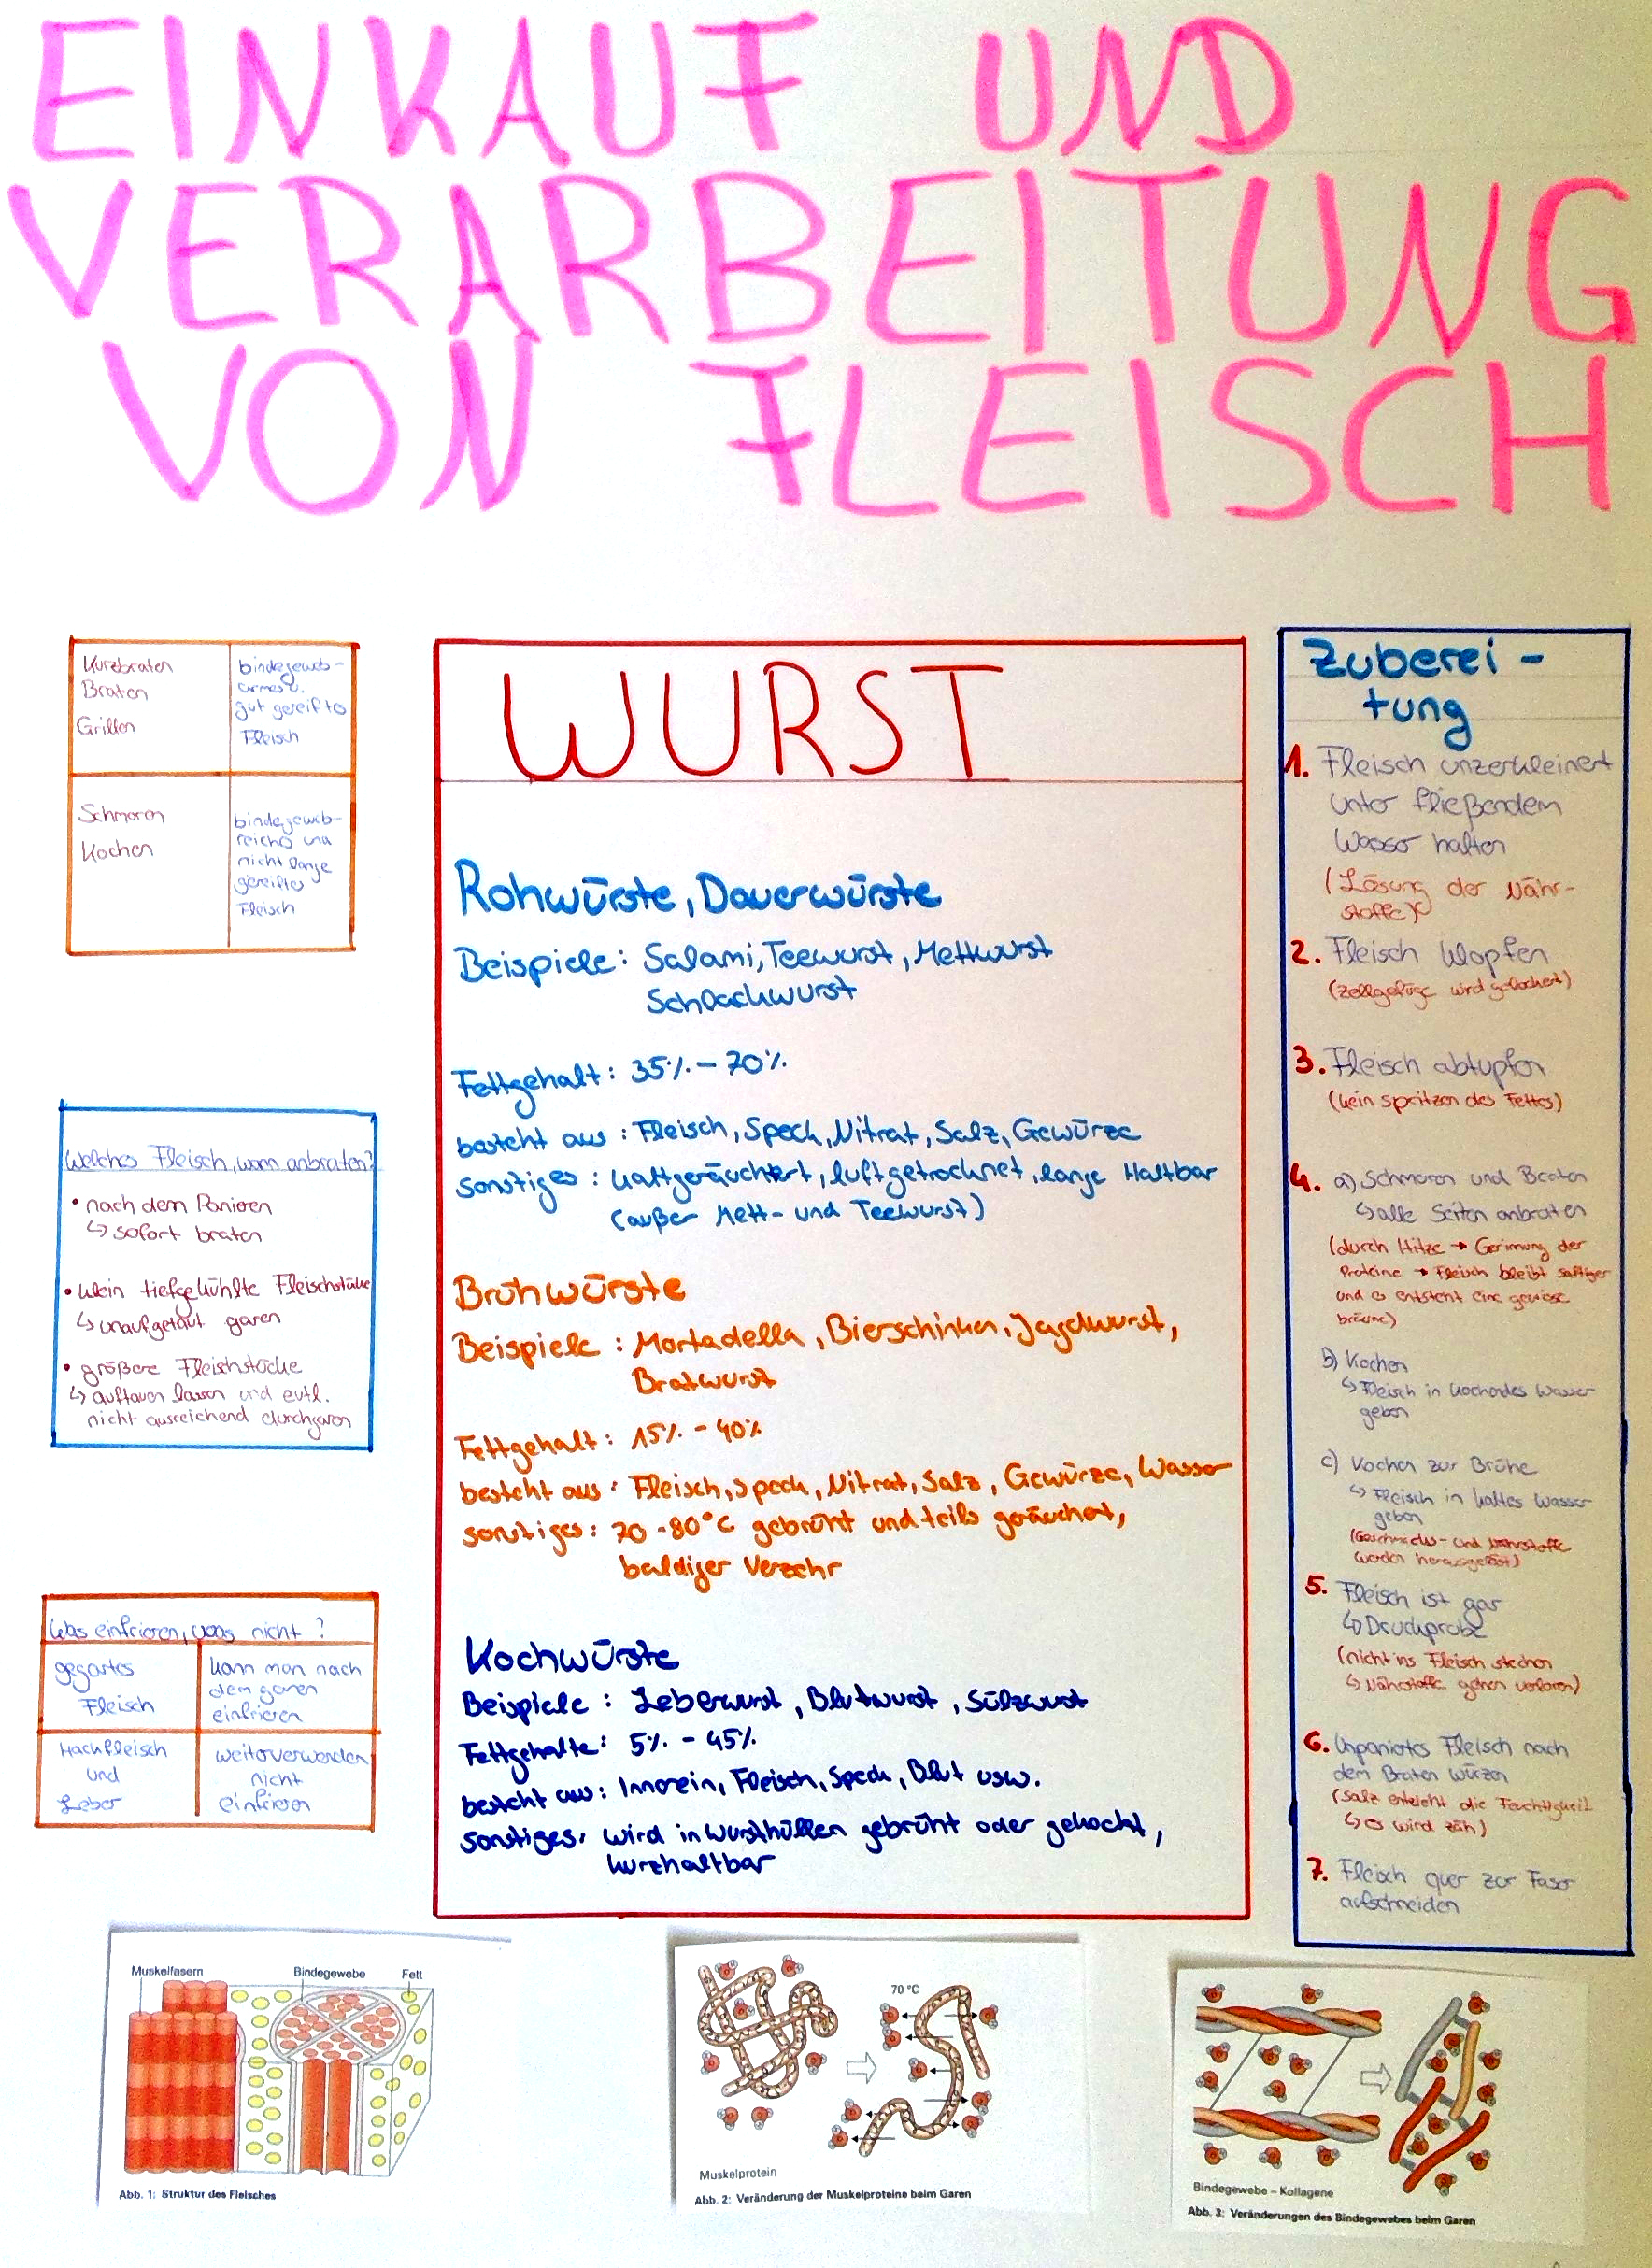 EINKAUF UND
VERARBEITUNG
VON FLEISCH
Kurzbraten
Braten
Grillen
bindegeweb-
armes u.
gut gereiftes
Fleisch
Schmoren
Kochen
bindegeweb-
reiches und
nicht lange
gereiftes
Fleisch
Welches Fleisch, wann anbraten?
• nach dem Panieren
↳ sofort braten
• klein tiefgekühlte Fleischstücke
↳ unaufgetaut garen
• größere Fleischstücke
↳ auftauen lassen und evtl.
nicht ausreichend durchgaren
Was einfrieren, was nicht?
gegartes
Fleisch
kann man nach
dem garen
einfrieren
Hackfleisch
und
Leber
weiterverwenden
nicht
einfrieren
WURST
Rohwürste, Dauerwürste
Beispiele: Salami, Teewurst, Mettwurst
Schlackwurst
Fettgehalt: 35% - 70%
besteht aus: Fleisch, Speck, Nitrat, Salz, Gewürze
sonstiges: kaltgeräuchert, luftgetrocknet, lange Haltbar
(außer Mett- und Teewurst)
Brühwürste
Beispiele: Mortadella, Bierschinken, Jagdwurst,
Bratwurst
Fettgehalt: 15% - 40%
besteht aus: Fleisch, Speck, Nitrat, Salz, Gewürze, Wasser
sonstiges: 70-80°C gebrüht und teils geräuchert,
baldiger Verzehr
Kochwürste
Beispiele: Leberwurst, Blutwurst, Sülzwurst
Fettgehalte: 5% - 45%
besteht aus: Innerein, Fleisch, Speck, Blut usw.
sonstiges: wird in Wursthüllen gebrüht oder gekocht,
kurzhaltbar
Zuberei-
tung
1. Fleisch unzerkleinert
unter fließendem
Wasser halten
(Lösung der Nähr-
stoffe)
2. Fleisch klopfen
(Zellgefüge wird gelockert)
3. Fleisch abtupfen
(kein spritzen des Fettes)
4. a) Schmoren und Braten
↳ alle Seiten anbraten
(durch Hitze → Gerinnung der
Proteine → Fleisch bleibt saftiger
und es entsteht eine gewisse
bräune)
b) Kochen
↳ Fleisch in kochendes Wasser
geben
c) Kochen zur Brühe
↳ Fleisch in kaltes Wasser
geben
(Geschmacks- und Nährstoffe
werden herausgelöst)
5. Fleisch ist gar
↳ Druckprobe
(nicht ins Fleisch stechen
↳ Nährstoffe gehen verloren)
6. Unpaniertes Fleisch nach
dem Braten würzen
(Salz entzieht die Feuchtigkeit
↳ es wird zäh)
7. Fleisch quer zur Faser
aufschneiden
Muskelfasern Bindegewebe Fett
Abb. 1: Struktur des Fleisches
70 °C
Muskelprotein
Abb. 2: Veränderung der Muskelproteine beim Garen
Bindegewebe – Kollagene
Abb. 3: Veränderungen des Bindegewebes beim Garen